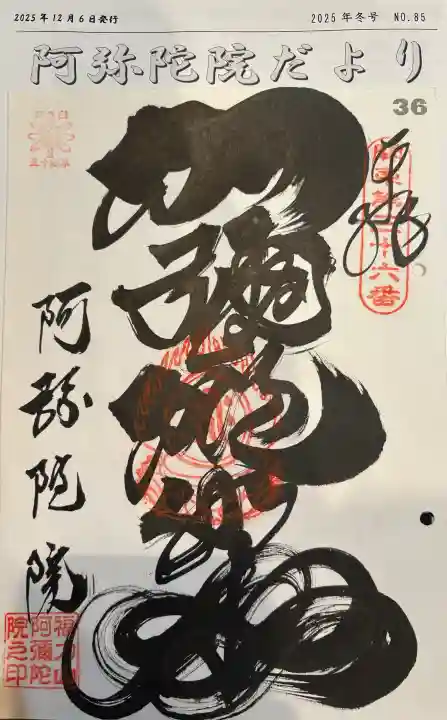 2025年12月6日発行
2025年冬号 NO.85
阿弥陀院だより
36
奉拝
阿彌陀如来
阿弥陀院
福力山
阿彌陀
院之印